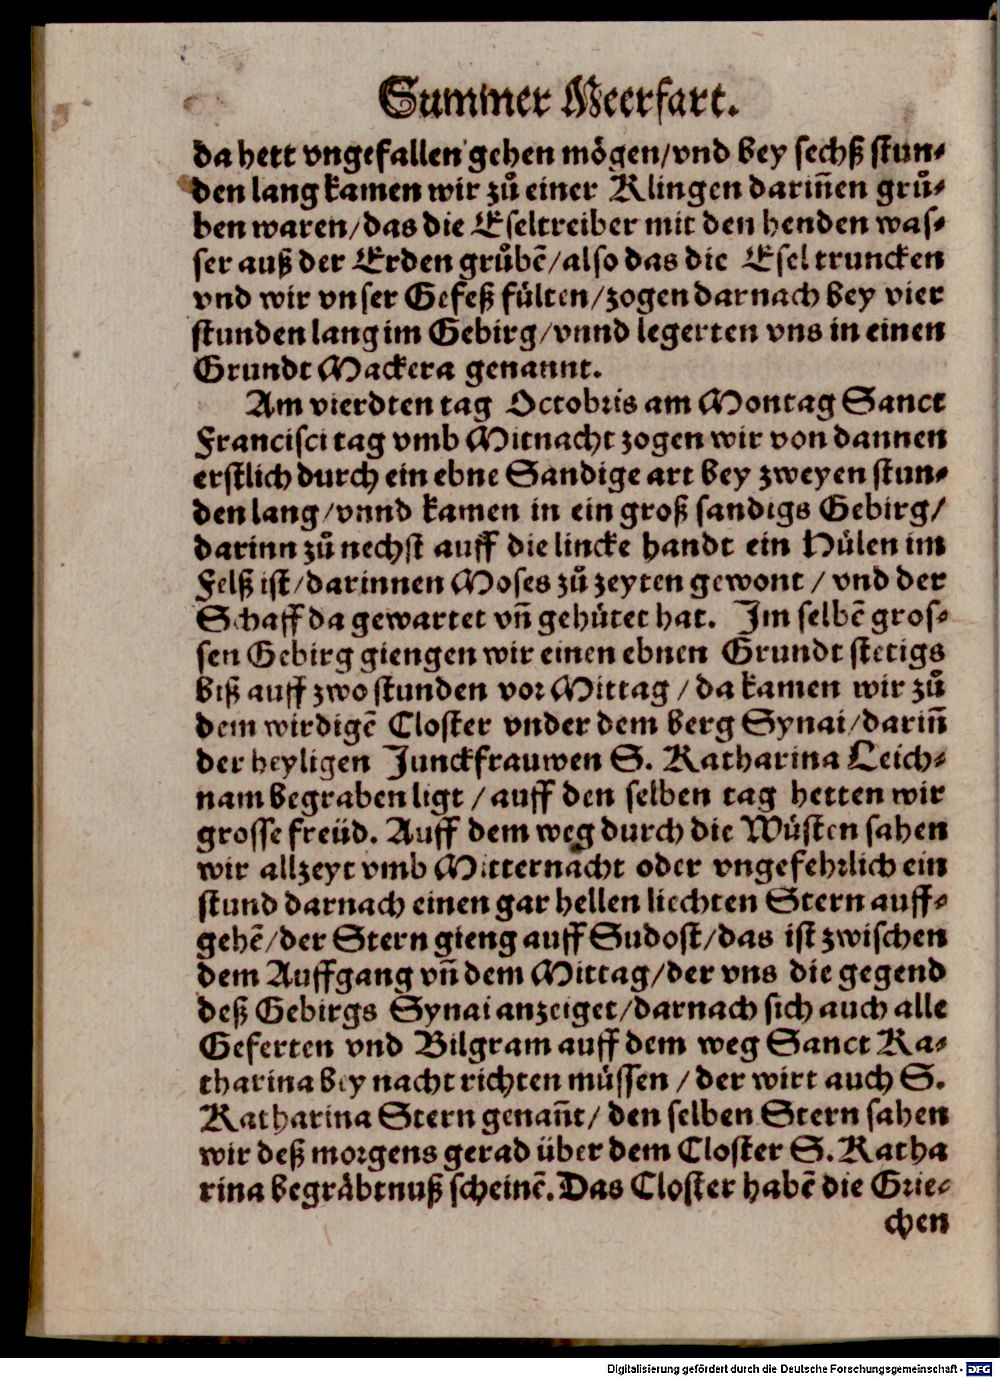 Summer Meerfart.
da hett vngefallen gehen mögen/vnd bey sechß stun⸗
den lang kamen wir zů einer Klingen dariñen grů⸗
ben waren/das die Eseltreiber mit den henden was⸗
ser auß der Erden grůbẽ/also das die Esel truncken
vnd wir vnser Gefeß fülten/zogen darnach bey vier
stunden lang im Gebirg/vnnd legerten vns in einen
Grundt Mackera genannt.
Am vierdten tag Octobris am Montag Sanct
Francisci tag vmb Mitnacht zogen wir von dannen
erstlich durch ein ebne Sandige art bey zweyen stun⸗
den lang/vnnd kamen in ein groß sandigs Gebirg/
darinn zů nechst auff die lincke handt ein Hülen im
Felß ist/darinnen Moses zů zeyten gewont/vnd der
Schaff da gewartet vñ gehütet hat. Im selbẽ gros⸗
sen Gebirg giengen wir einen ebnen Grundt stetigs
biß auff zwo stunden vor Mittag/da kamen wir zů
dem wirdigẽ Closter vnder dem berg Synai/dariñ
der heyligen Junckfrauwen S. Katharina Leich⸗
nam begraben ligt/auff den selben tag hetten wir
grosse freüd. Auff dem weg durch die Wüsten sahen
wir allzeyt vmb Mitternacht oder vngefehrlich ein
stund darnach einen gar hellen liechten Stern auff⸗
gehẽ/der Stern gieng auff Sudost/das ist zwischen
dem Auffgang vñ dem Mittag/der vns die gegend
deß Gebirgs Synai anzeiget/darnach sich auch alle
Geferten vnd Bilgram auff dem weg Sanct Ka⸗
tharina bey nacht richten müssen/der wirt auch S.
Katharina Stern genañt/den selben Stern sahen
wir deß morgens gerad über dem Closter S. Katha
rina begräbtnuß scheinẽ. Das Closter habẽ die Grie⸗
chen
Digitalisierung gefördert durch die Deutsche Forschungsgemeinschaft - DFG